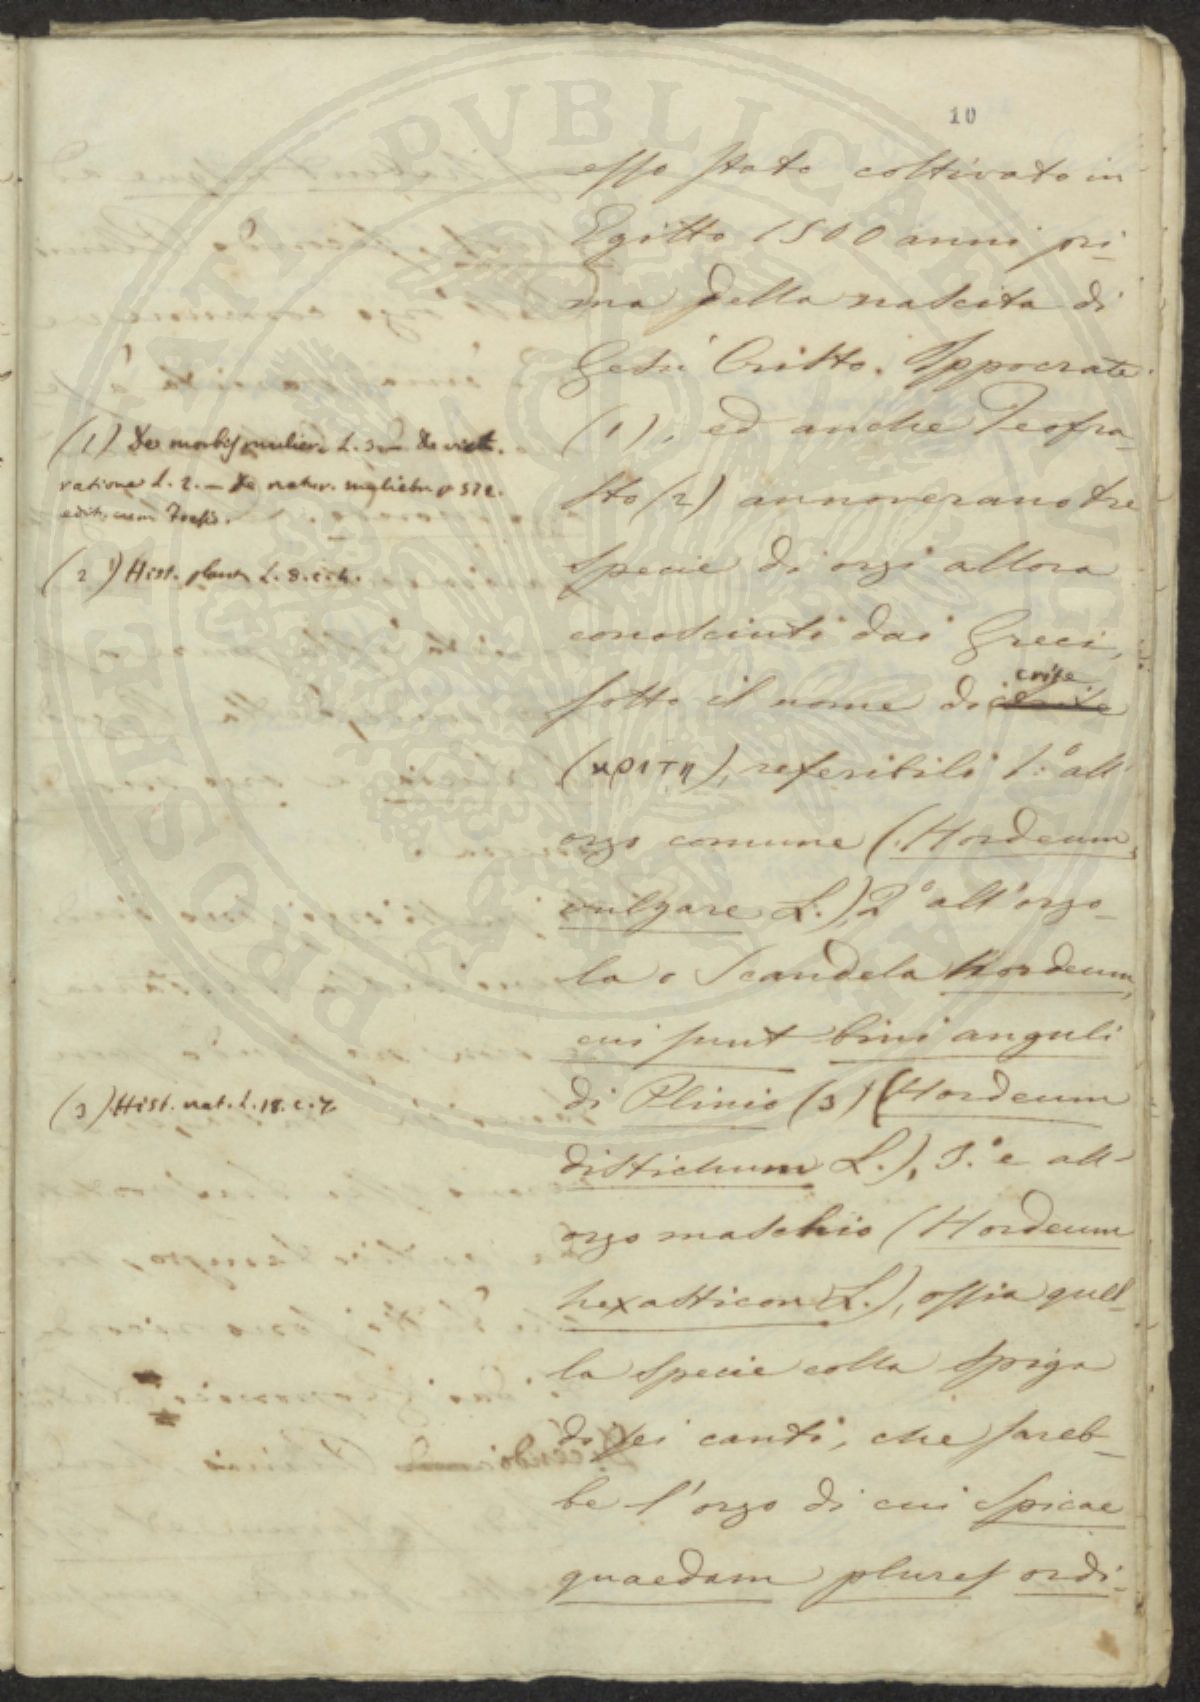 10
esso stato coltivato in
Egitto 1500 anni pri-
ma della nascita di
Gesù Cristo. Ippocrate
(1), ed anche Teofra-
sto (2) annoverano tre
specie di orzi allora
conosciuti dai Greci,
sotto il nome di crite
(κριτη), referibili 1.º all'
orzo comune (Hordeum
vulgare L.) 2º all'orzo-
la o Scandela Hordeum,
cui sunt bini anguli
di Plinio (3) (Hordeum
distichum L.), 3.º e all'
orzo maschio (Hordeum
hexasticon L.), ossia quel-
la specie colla spiga
di sei canti, che sareb-
be l'orzo di cui spicae
quaedam plures ordi-
(1) De morbis mulier. L. 3 — De vict.
ratione L. 2. — De natur. muliebr. p. 572.
edit.
(2) Hist. plant L. 8. c. 4.
(3) Hist. nat. L. 18. c. 7.
PROSPERITATI PVBLICAE AVGENDAE